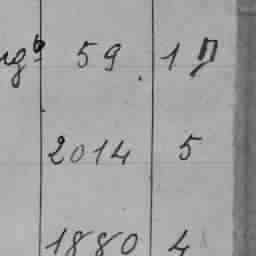 59 1
2014 5
1880 4